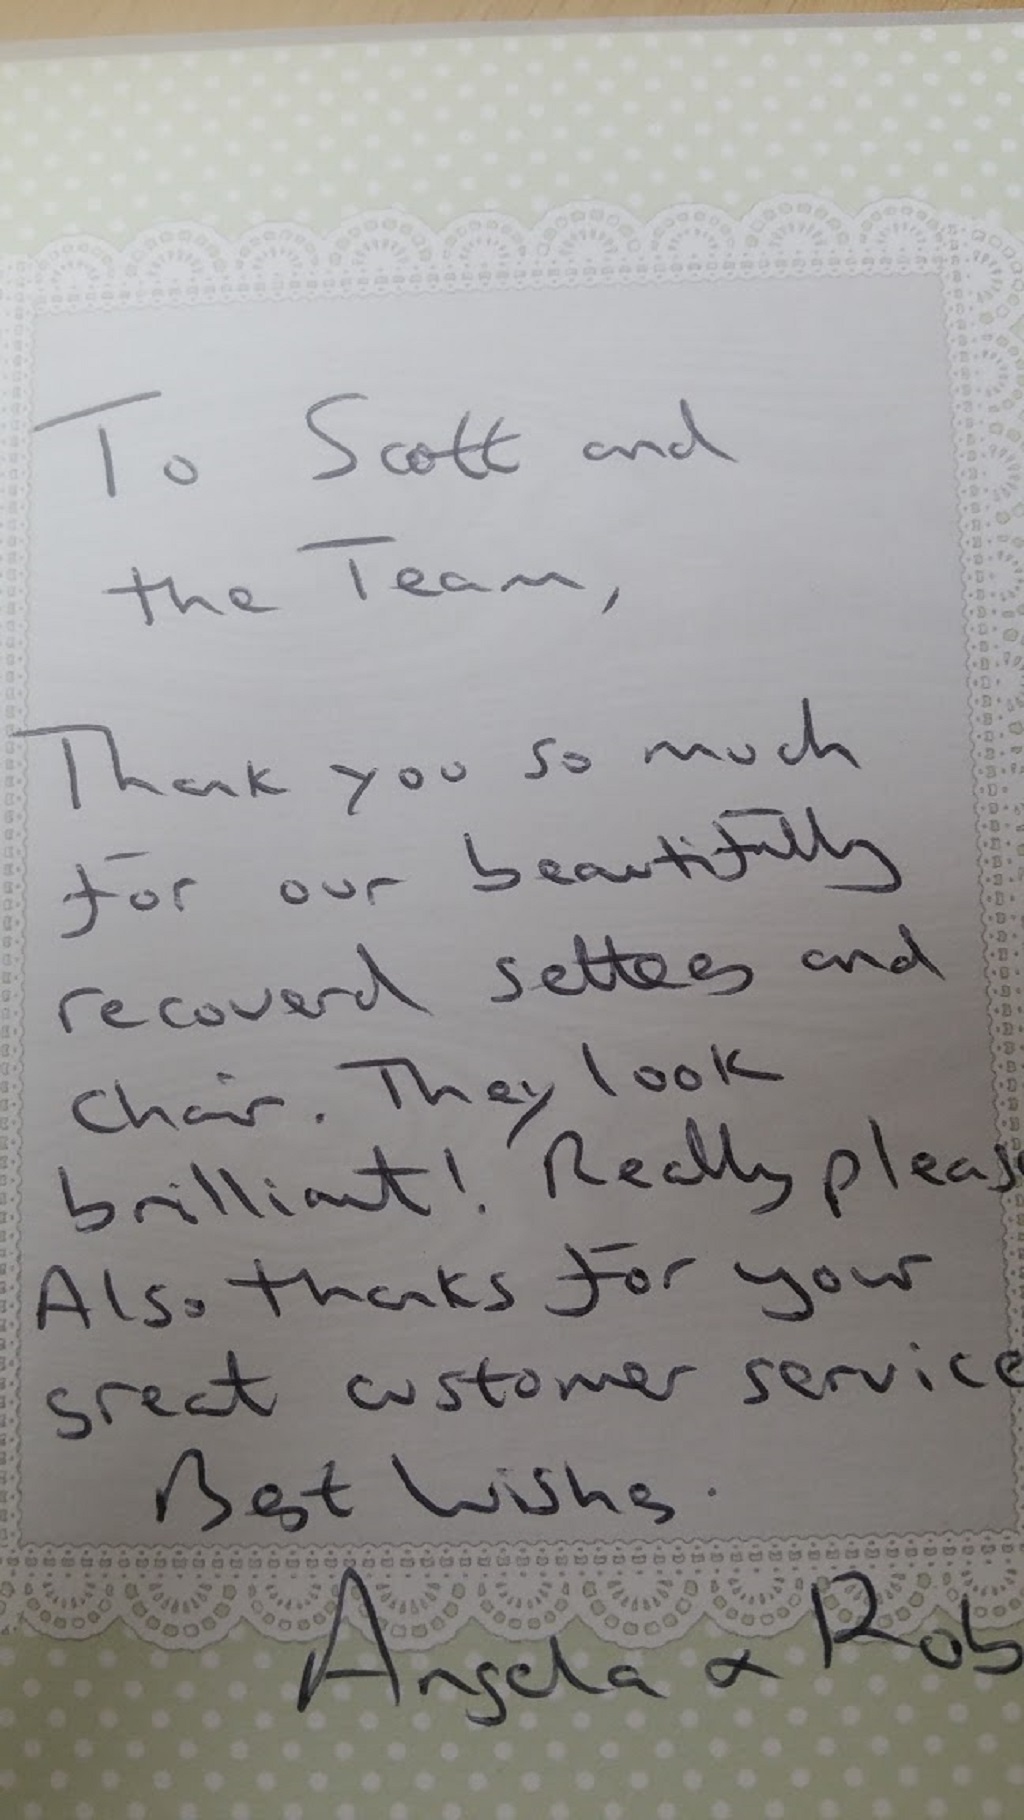 To Scott and
the Team,
Thank you so much
for our beautifully
recoverd settees and
chair. They look
brilliant! Really pleas
Also thanks for your
great customer service
Best Wishes.
Angela & Rob